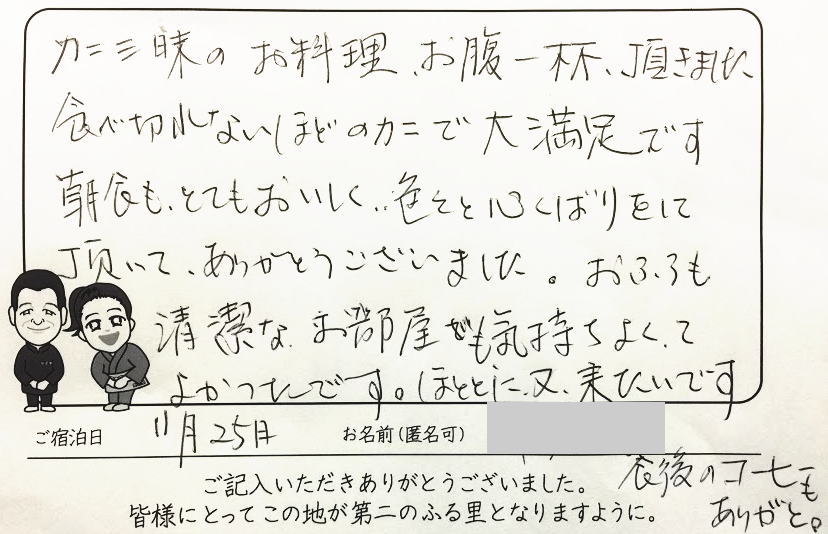 カニ三昧のお料理、お腹一杯、頂きました
食べ切れないほどのカニで大満足です
朝食も、とてもおいしく、色々と心くばりをして
頂いて、ありがとうございました。おふろも
清潔な、お部屋も気持ちよくて
よかったです。ほんとに、又、来たいです
ご宿泊日 11月25日 お名前(匿名可)
ご記入いただきありがとうございました。
皆様にとってこの地が第二のふる里となりますように。
食後のコーヒーも
ありがと。